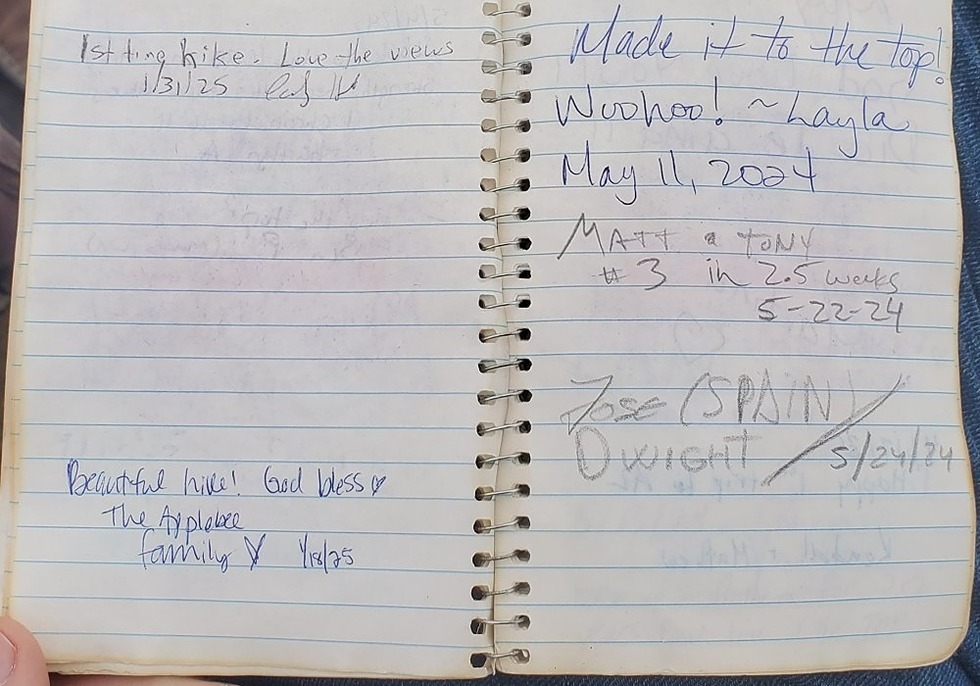 1st time hike. Love the views
1/31/25
Beautful hike! God bless ♡
The Applebee
family ♡ 1/18/25
Made it to the top!
Woohoo! ~Layla
May 11, 2024
MATT & TONY
#3 in 2.5 weeks
5-22-24
Jose (SPAIN)
DWIGHT / 5/24/24